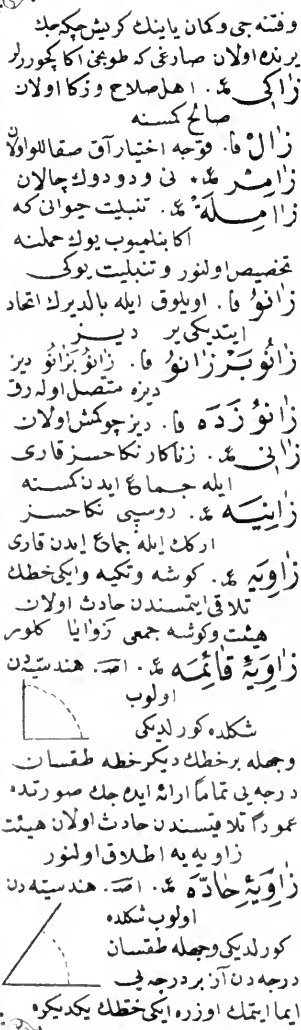 وفتنه جی وكمان یاینك كریش چكه جك
یرنده اولان صارغی كه طوبخی اكا كچوررلر
زَاكِی عَ. اهل صلاح وزكا اولان
صالح كمسنه
زَالْ فا. قوجه اختیار آق صقاللو اولان
زَامِرْ عَ. نی ودودوك چالان
زَامِلَهْ عَ. تنبلیت حیوانی كه
اكا بنلمیوب یوك حملنه
تخصیص اولنور وتنبلیت یوكی
زَانُو فا. اویلوق ایله بالدیرك اتحاد
ایتدیكی یر دیز
زَانُو بَرْ زَانُو فا. زَانُو بَزَانُو دیز
دیزه متصل اوله رق
زَانُو زَدَه فا. دیز چوكمش اولان
زَانِی عَ. زناكار نكاحسز قاری
ایله جماع ایدن كمسنه
زَانِیَه عَ. روسپی نكاحسز
ارككله جماع ایدن قاری
زَاوِیَه عَ. كوشه وتكیه وایكی خطك
تلاقی ایتمسندن حادث اولان
هیئت وكوشه جمعی زَوَایَا كلور
زَاوِیَۀ قَائِمَه عَ. اصـ. هندسیه دن
اولوب
شكلده كورلدیكی
وجهله بر خطك دیكر خطه طقسان
درجه یی تماماً ارائه ایده جك صورتده
عموداً تلاقیسندن حادث اولان هیئت
زاویه یه اطلاق اولنور
زَاوِیَۀ حَادَّه عَ. اصـ. هندسیه دن
اولوب شكلده
كورلدیكی وجهله طقسان
درجه دن آز بر درجه یی
ایما ایتمك اوزره ایكی خطك یكدیكره